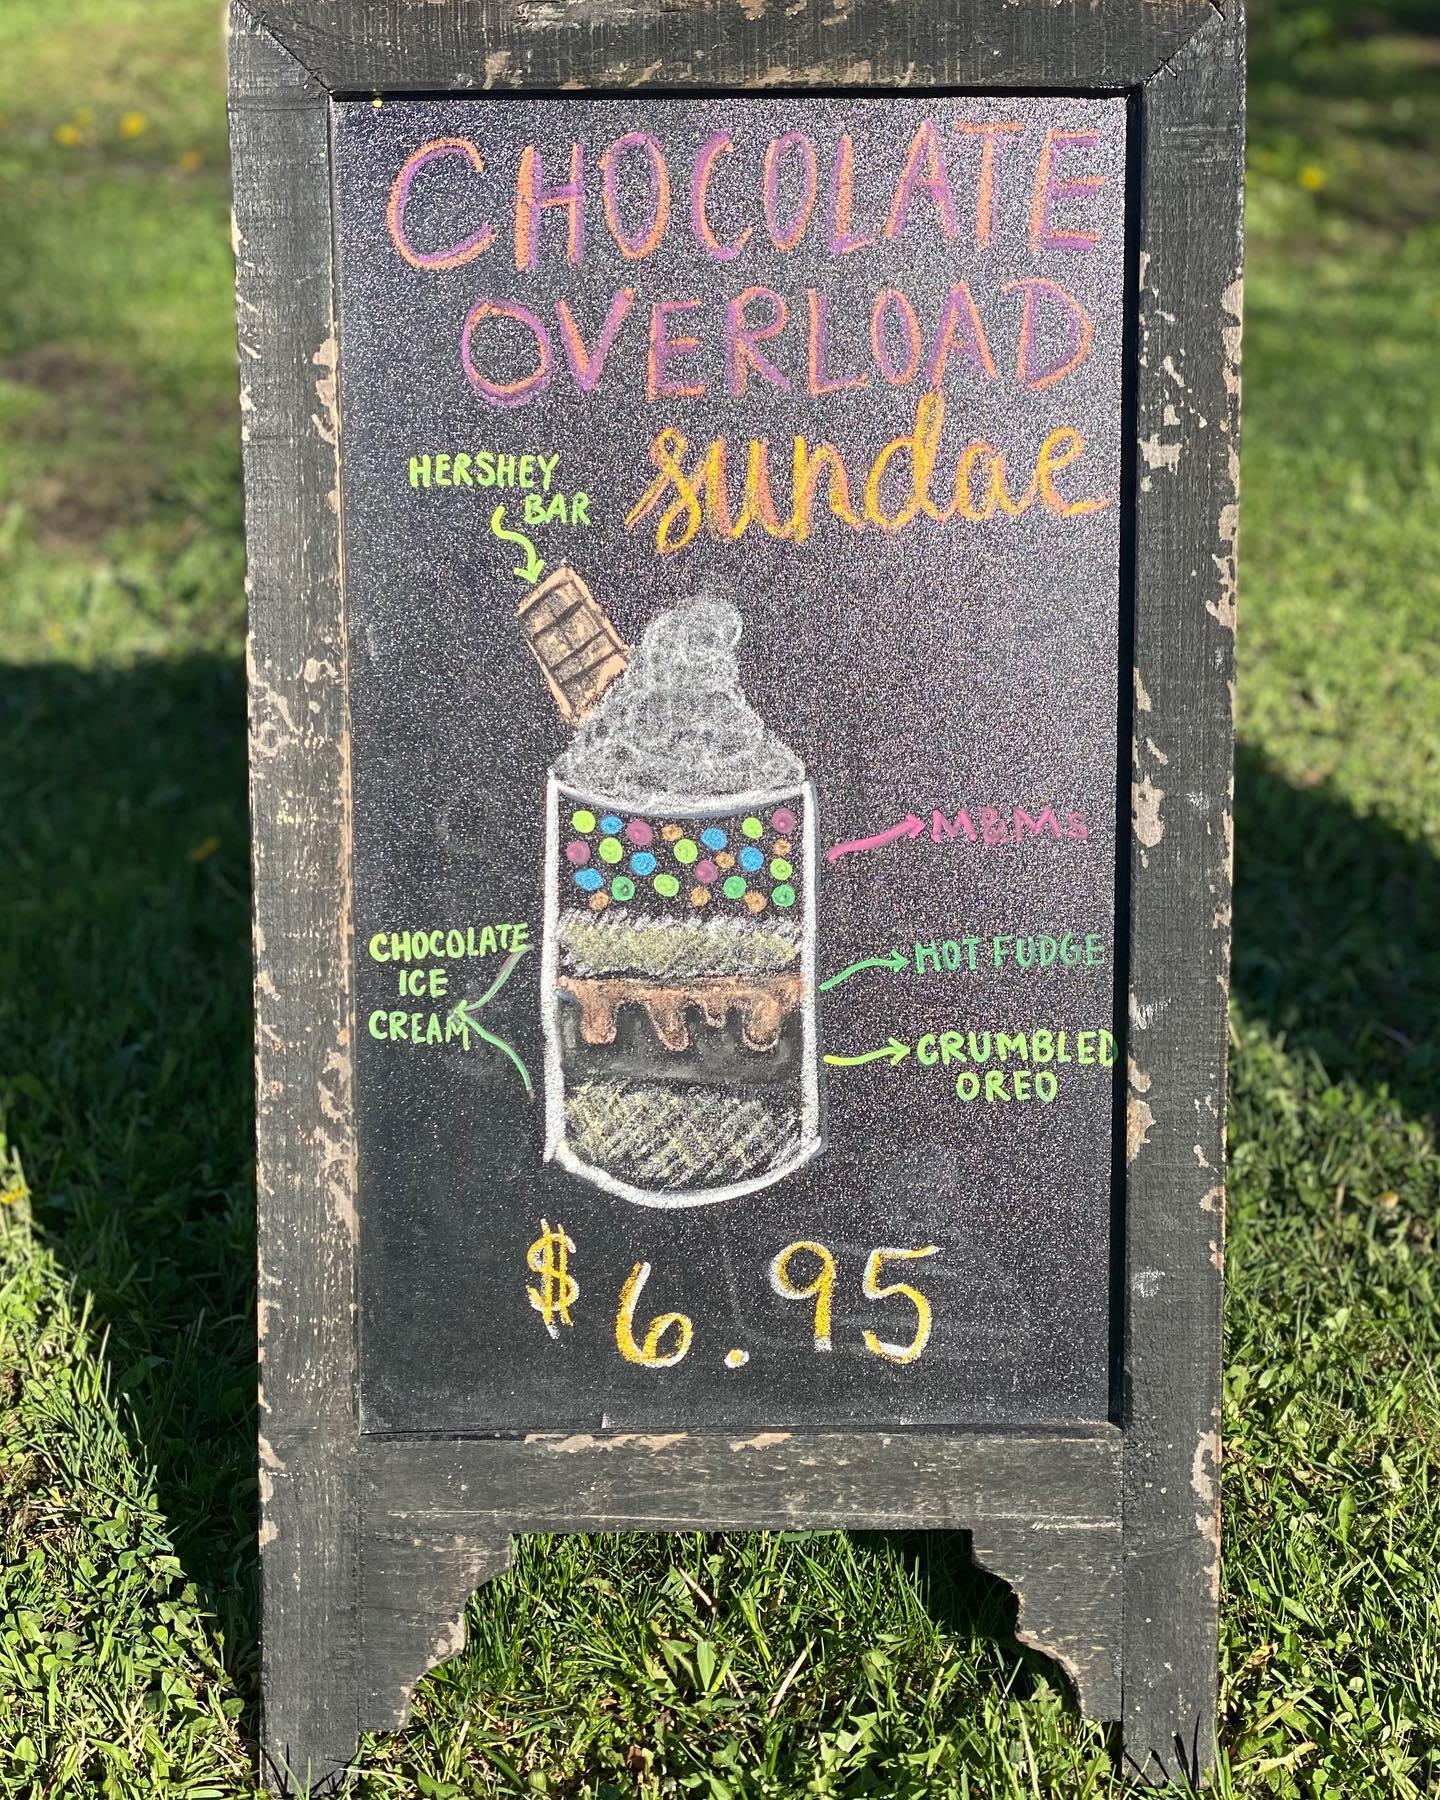 CHOCOLATE
OVERLOAD
sundae
HERSHEY
BAR
M&Ms
CHOCOLATE
ICE
CREAM
HOT FUDGE
CRUMBLED
OREO
$6.95